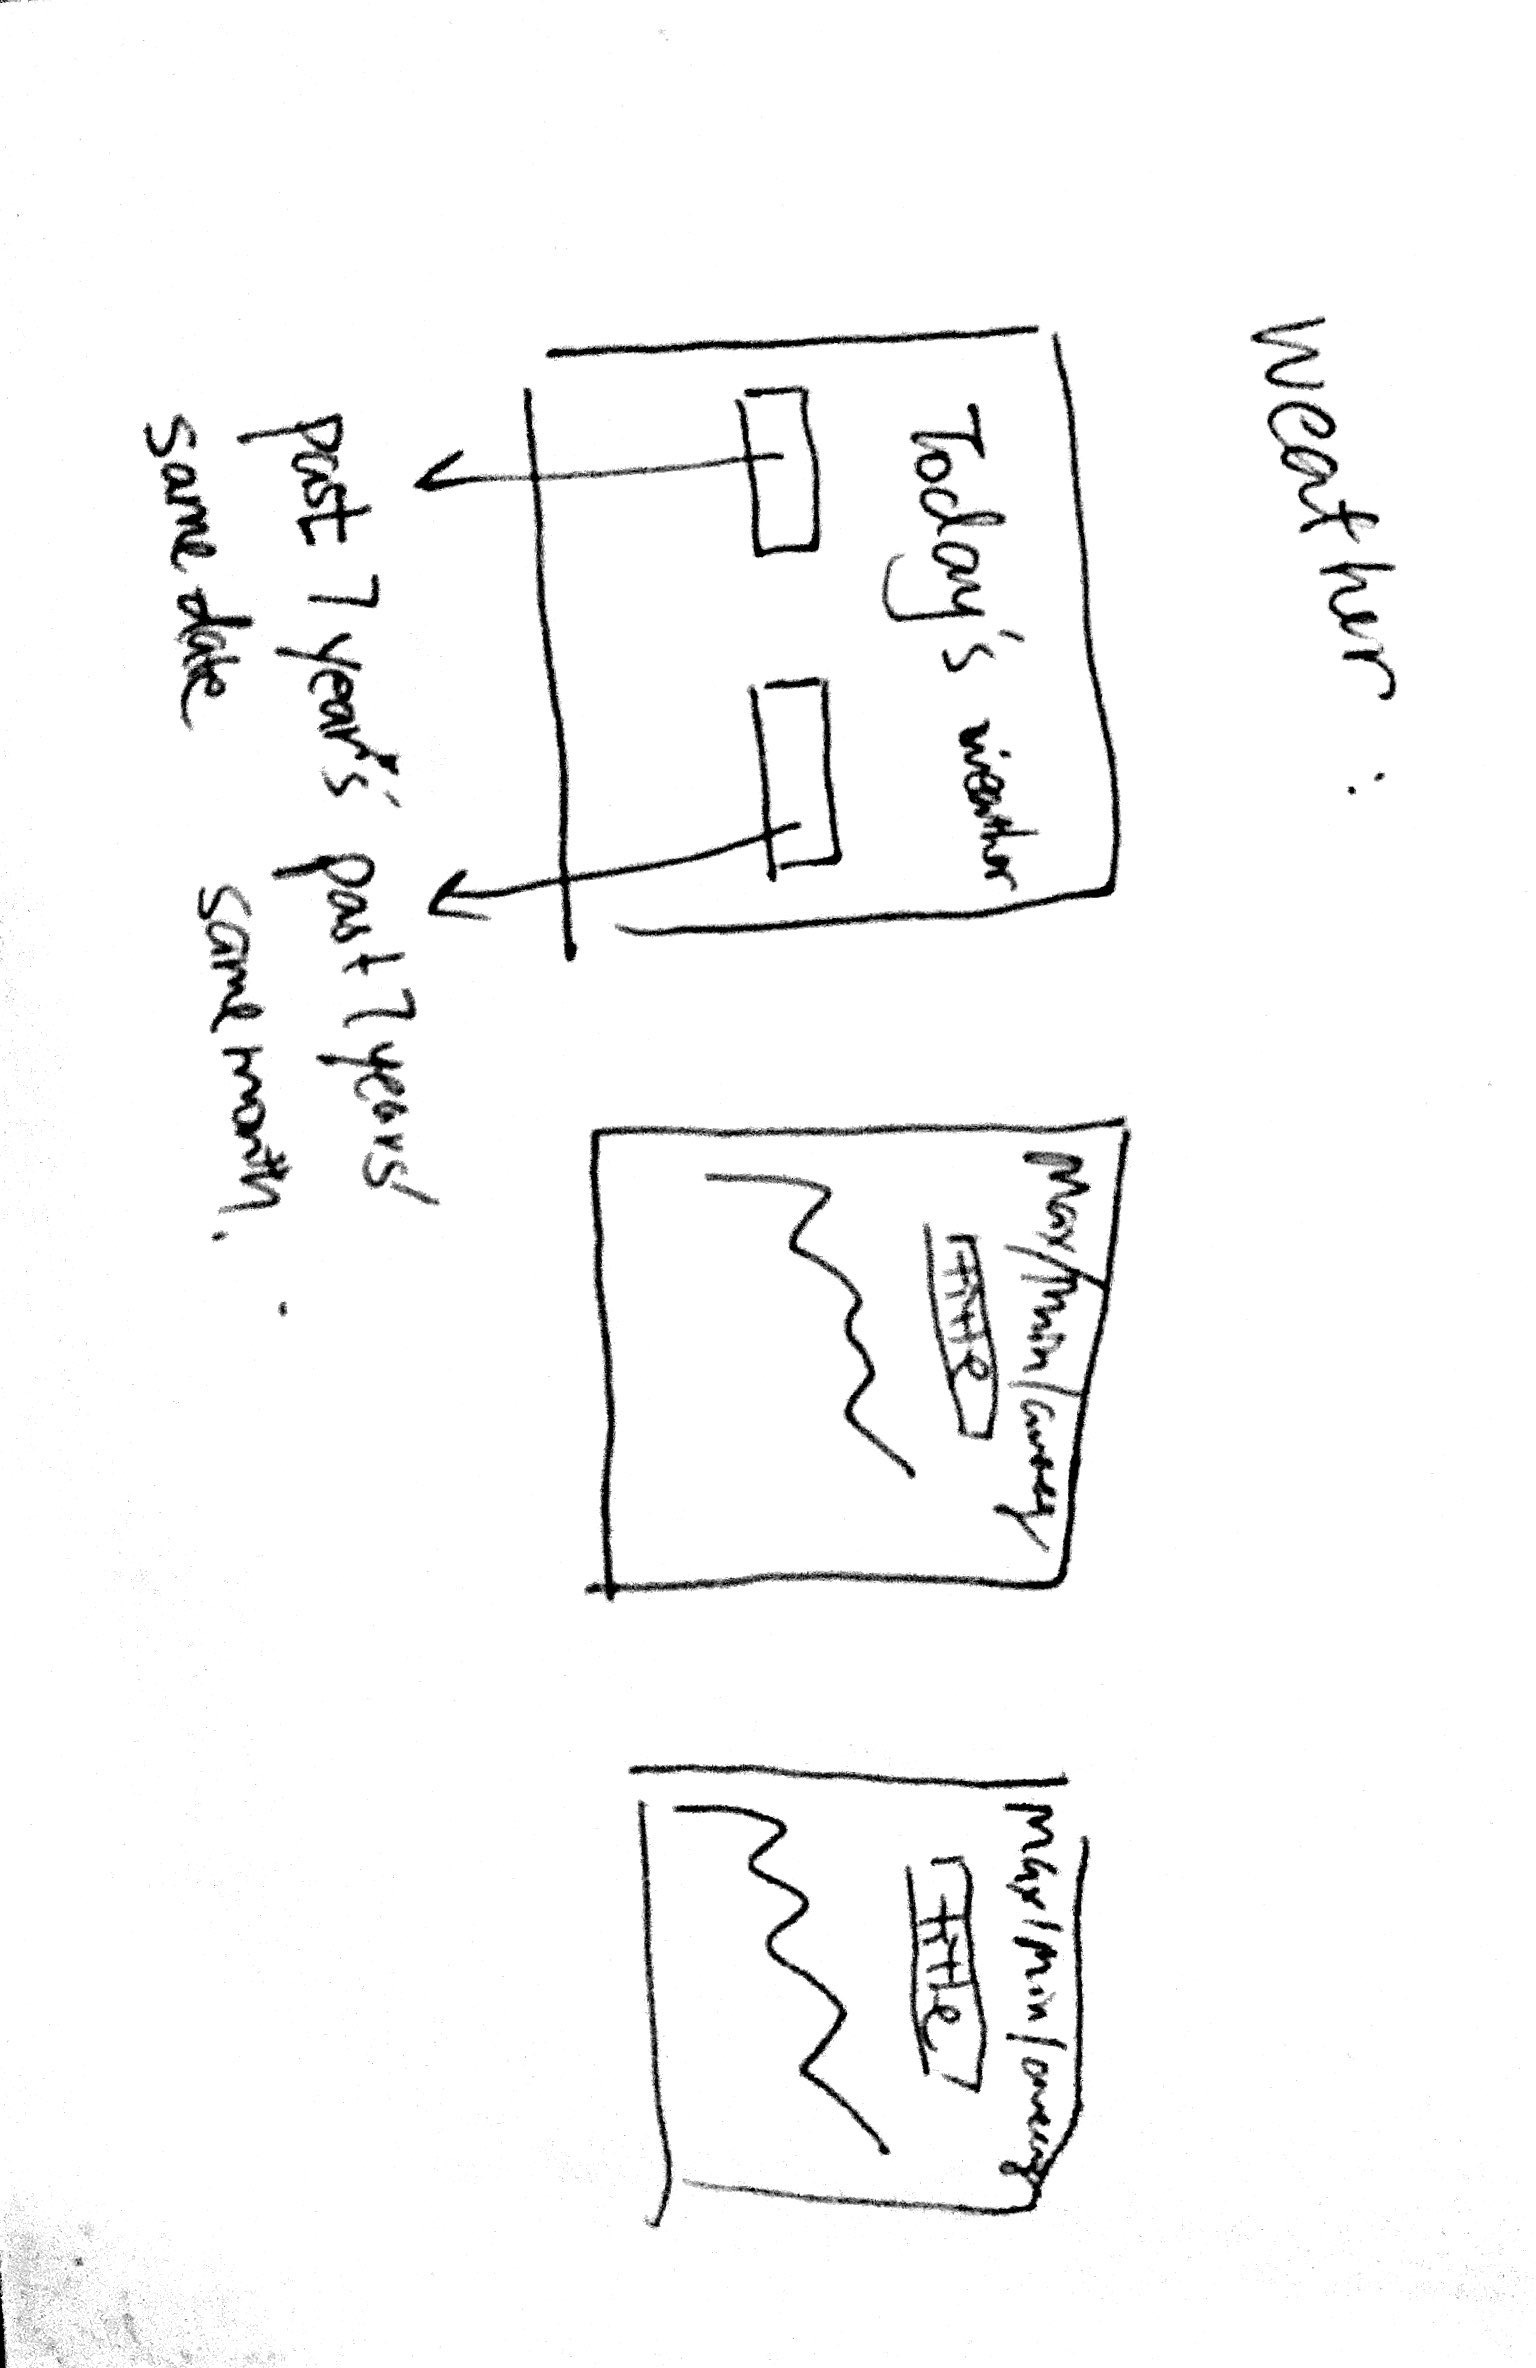 Weather :
Today's weather
past 7 year's
same date
past 7 years'
same month.
Max/Min/
title
Max/Min/
title